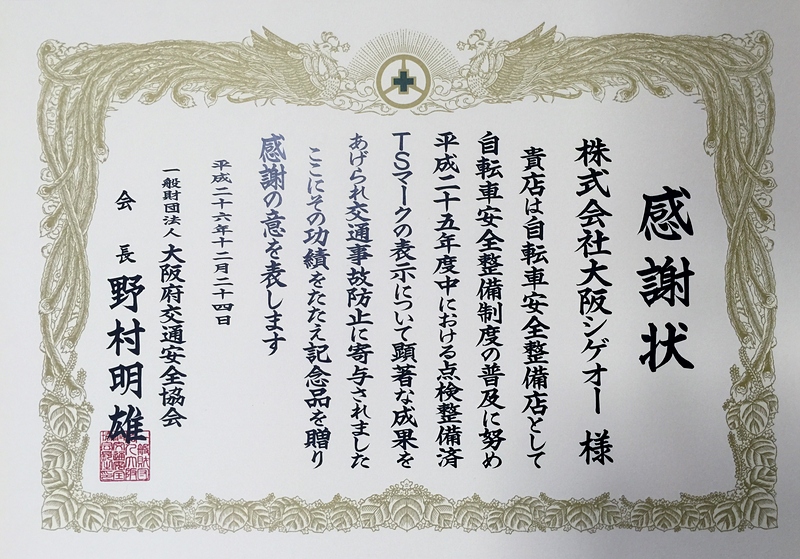 感謝状
株式会社大阪シゲオー 様
貴店は自転車安全整備店として
自転車安全整備制度の普及に努め
平成二十五年度中における点検整備済
TSマークの表示について顕著な成果を
あげられ交通事故防止に寄与されました
ここにその功績をたたえ記念品を贈り
感謝の意を表します
平成二十六年十二月二十四日
一般財団法人 大阪府交通安全協会
会長 野村明雄